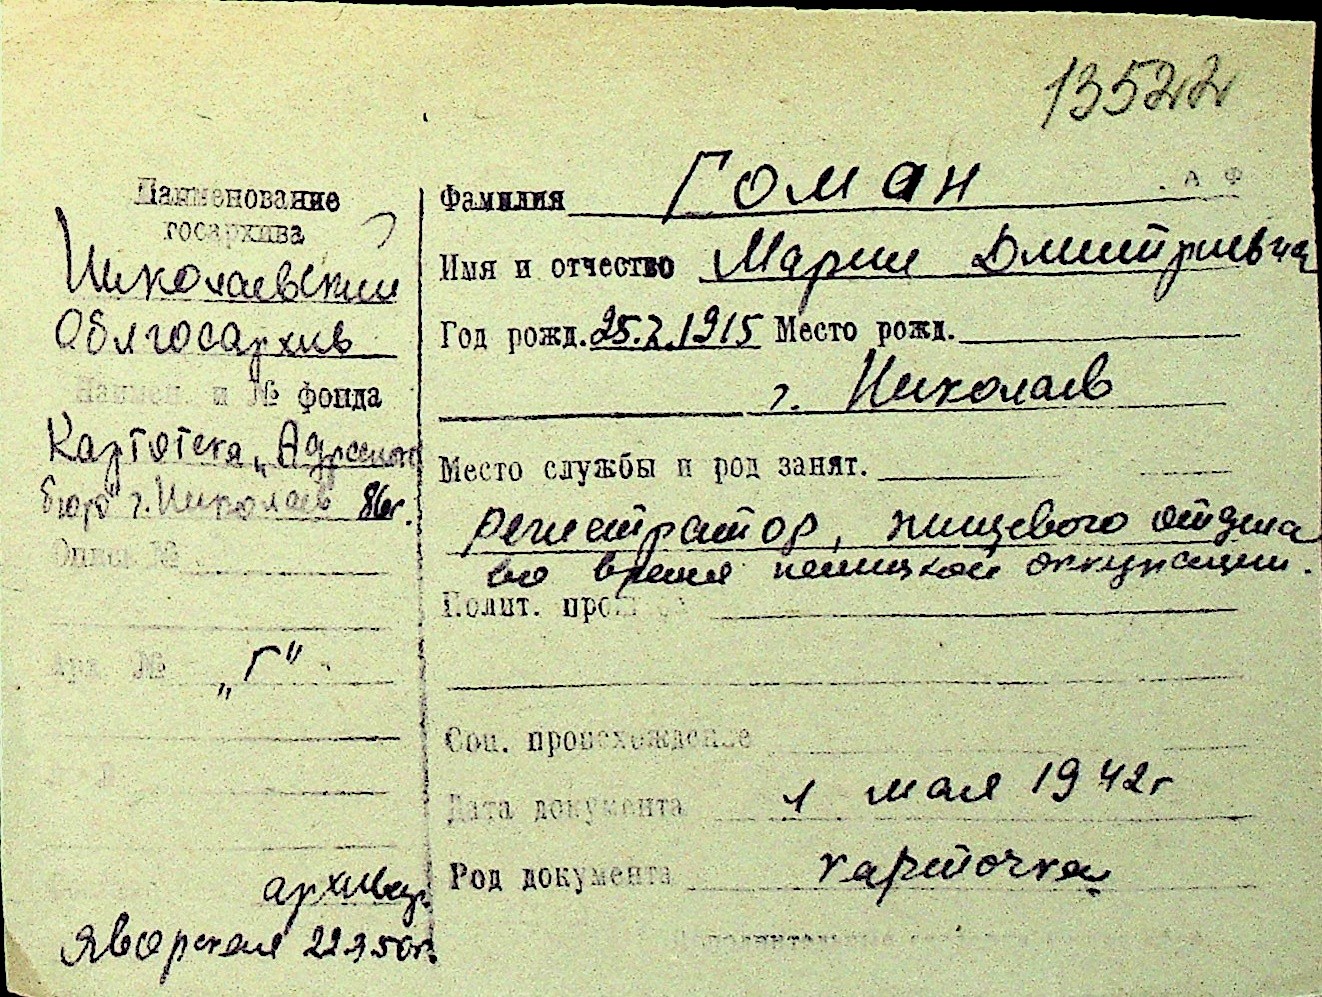 13522
Наименование
госархива
Николаевский
Облгосархив
Наимен. и № фонда
Картотека „Адресного
бюро" г. Николаев
Опись №
Арх. №
„Г"
архивар.
Яворская
Фамилия Гоман
А Ф
Имя и отчество Мария Дмитриевна
Год рожд. 25.2.1915 Место рожд.
г. Николаев
Место службы и род занят.
регистратор, пищевого отдела
во время немецкой оккупации.
Полит. прош
Соц. происхождение
Дата документа 1 мая 1942г
Род документа карточка